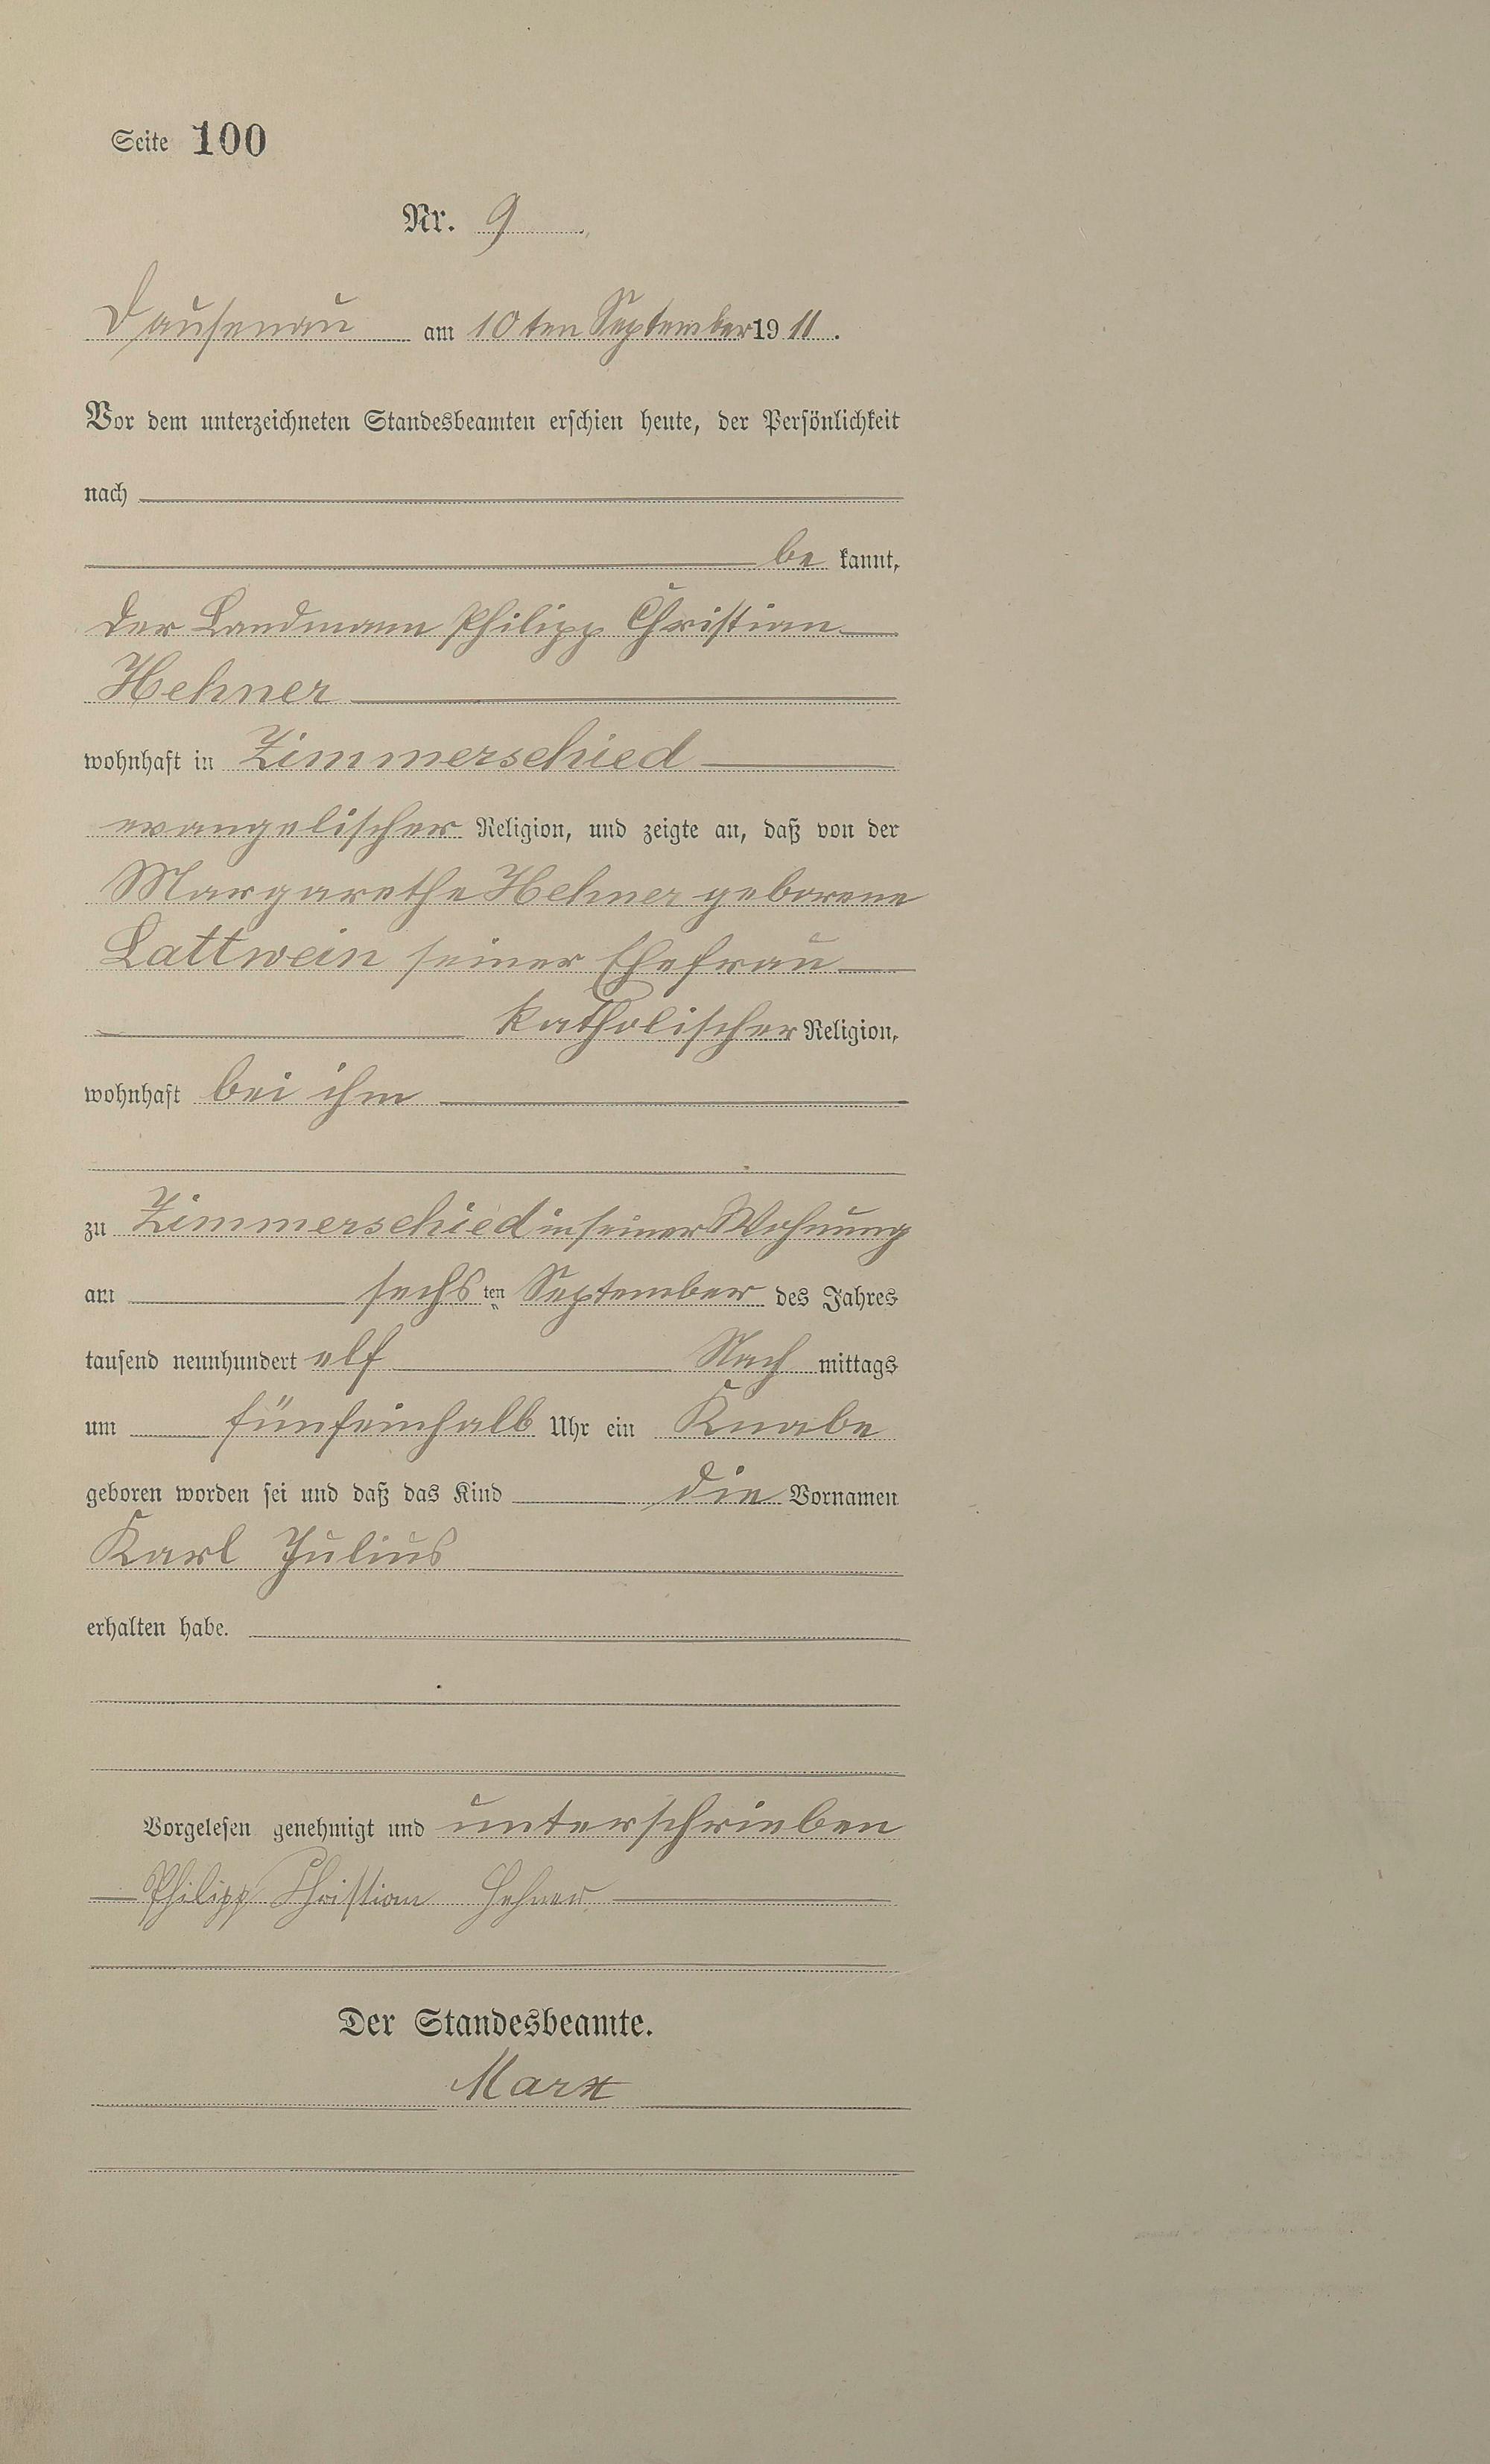 Seite 100
Nr. 9
Dausenau am 10ten September 1911.
Vor dem unterzeichneten Standesbeamten erschien heute, der Persönlichkeit
nach
be kannt,
der Landmann Philipp Christian
Hehner
wohnhaft in Zimmerschied
evangelischer Religion, und zeigte an, daß von der
Margarethe Hehner geborene
Lattwein seiner Ehefrau
katholischer Religion,
wohnhaft bei ihm
zu Zimmerschied in seiner Wohnung
am sechs ten September des Jahres
tausend neunhundert elf Nach mittags
um fünfeinhalb Uhr ein Knabe
geboren worden sei und daß das Kind die Vornamen
Karl Julius
erhalten habe.
Vorgelesen genehmigt und unterschrieben
Philipp Christian Hehner
Der Standesbeamte.
Marx